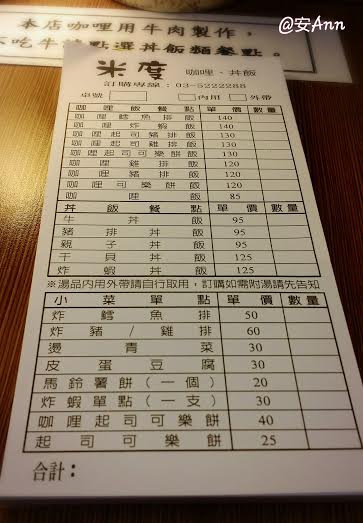 本店咖哩用牛肉製作，
不吃牛請點選丼飯類餐點。
@安Ann
米度 咖哩、丼飯
訂購專線：03-5222288
桌號 內用 外帶
咖哩飯餐點 單價 數量
咖哩鱈魚排飯 140
咖哩炸蝦飯 140
咖哩起司豬排飯 130
咖哩起司雞排飯 130
咖哩起司可樂餅飯 130
咖哩雞排飯 120
咖哩豬排飯 120
咖哩可樂餅飯 120
咖哩飯 85
丼飯餐點 單價 數量
牛丼飯 95
豬排丼飯 95
親子丼飯 95
干貝丼飯 125
炸蝦丼飯 125
※湯品內用外帶請自行取用，訂購如需附湯請先告知
小菜單點 單價 數量
炸鱈魚排 50
炸豬/雞排 60
燙青菜 30
皮蛋豆腐 30
馬鈴薯餅（一個） 20
炸蝦單點（一支） 30
咖哩起司可樂餅 40
起司可樂餅 25
合計：